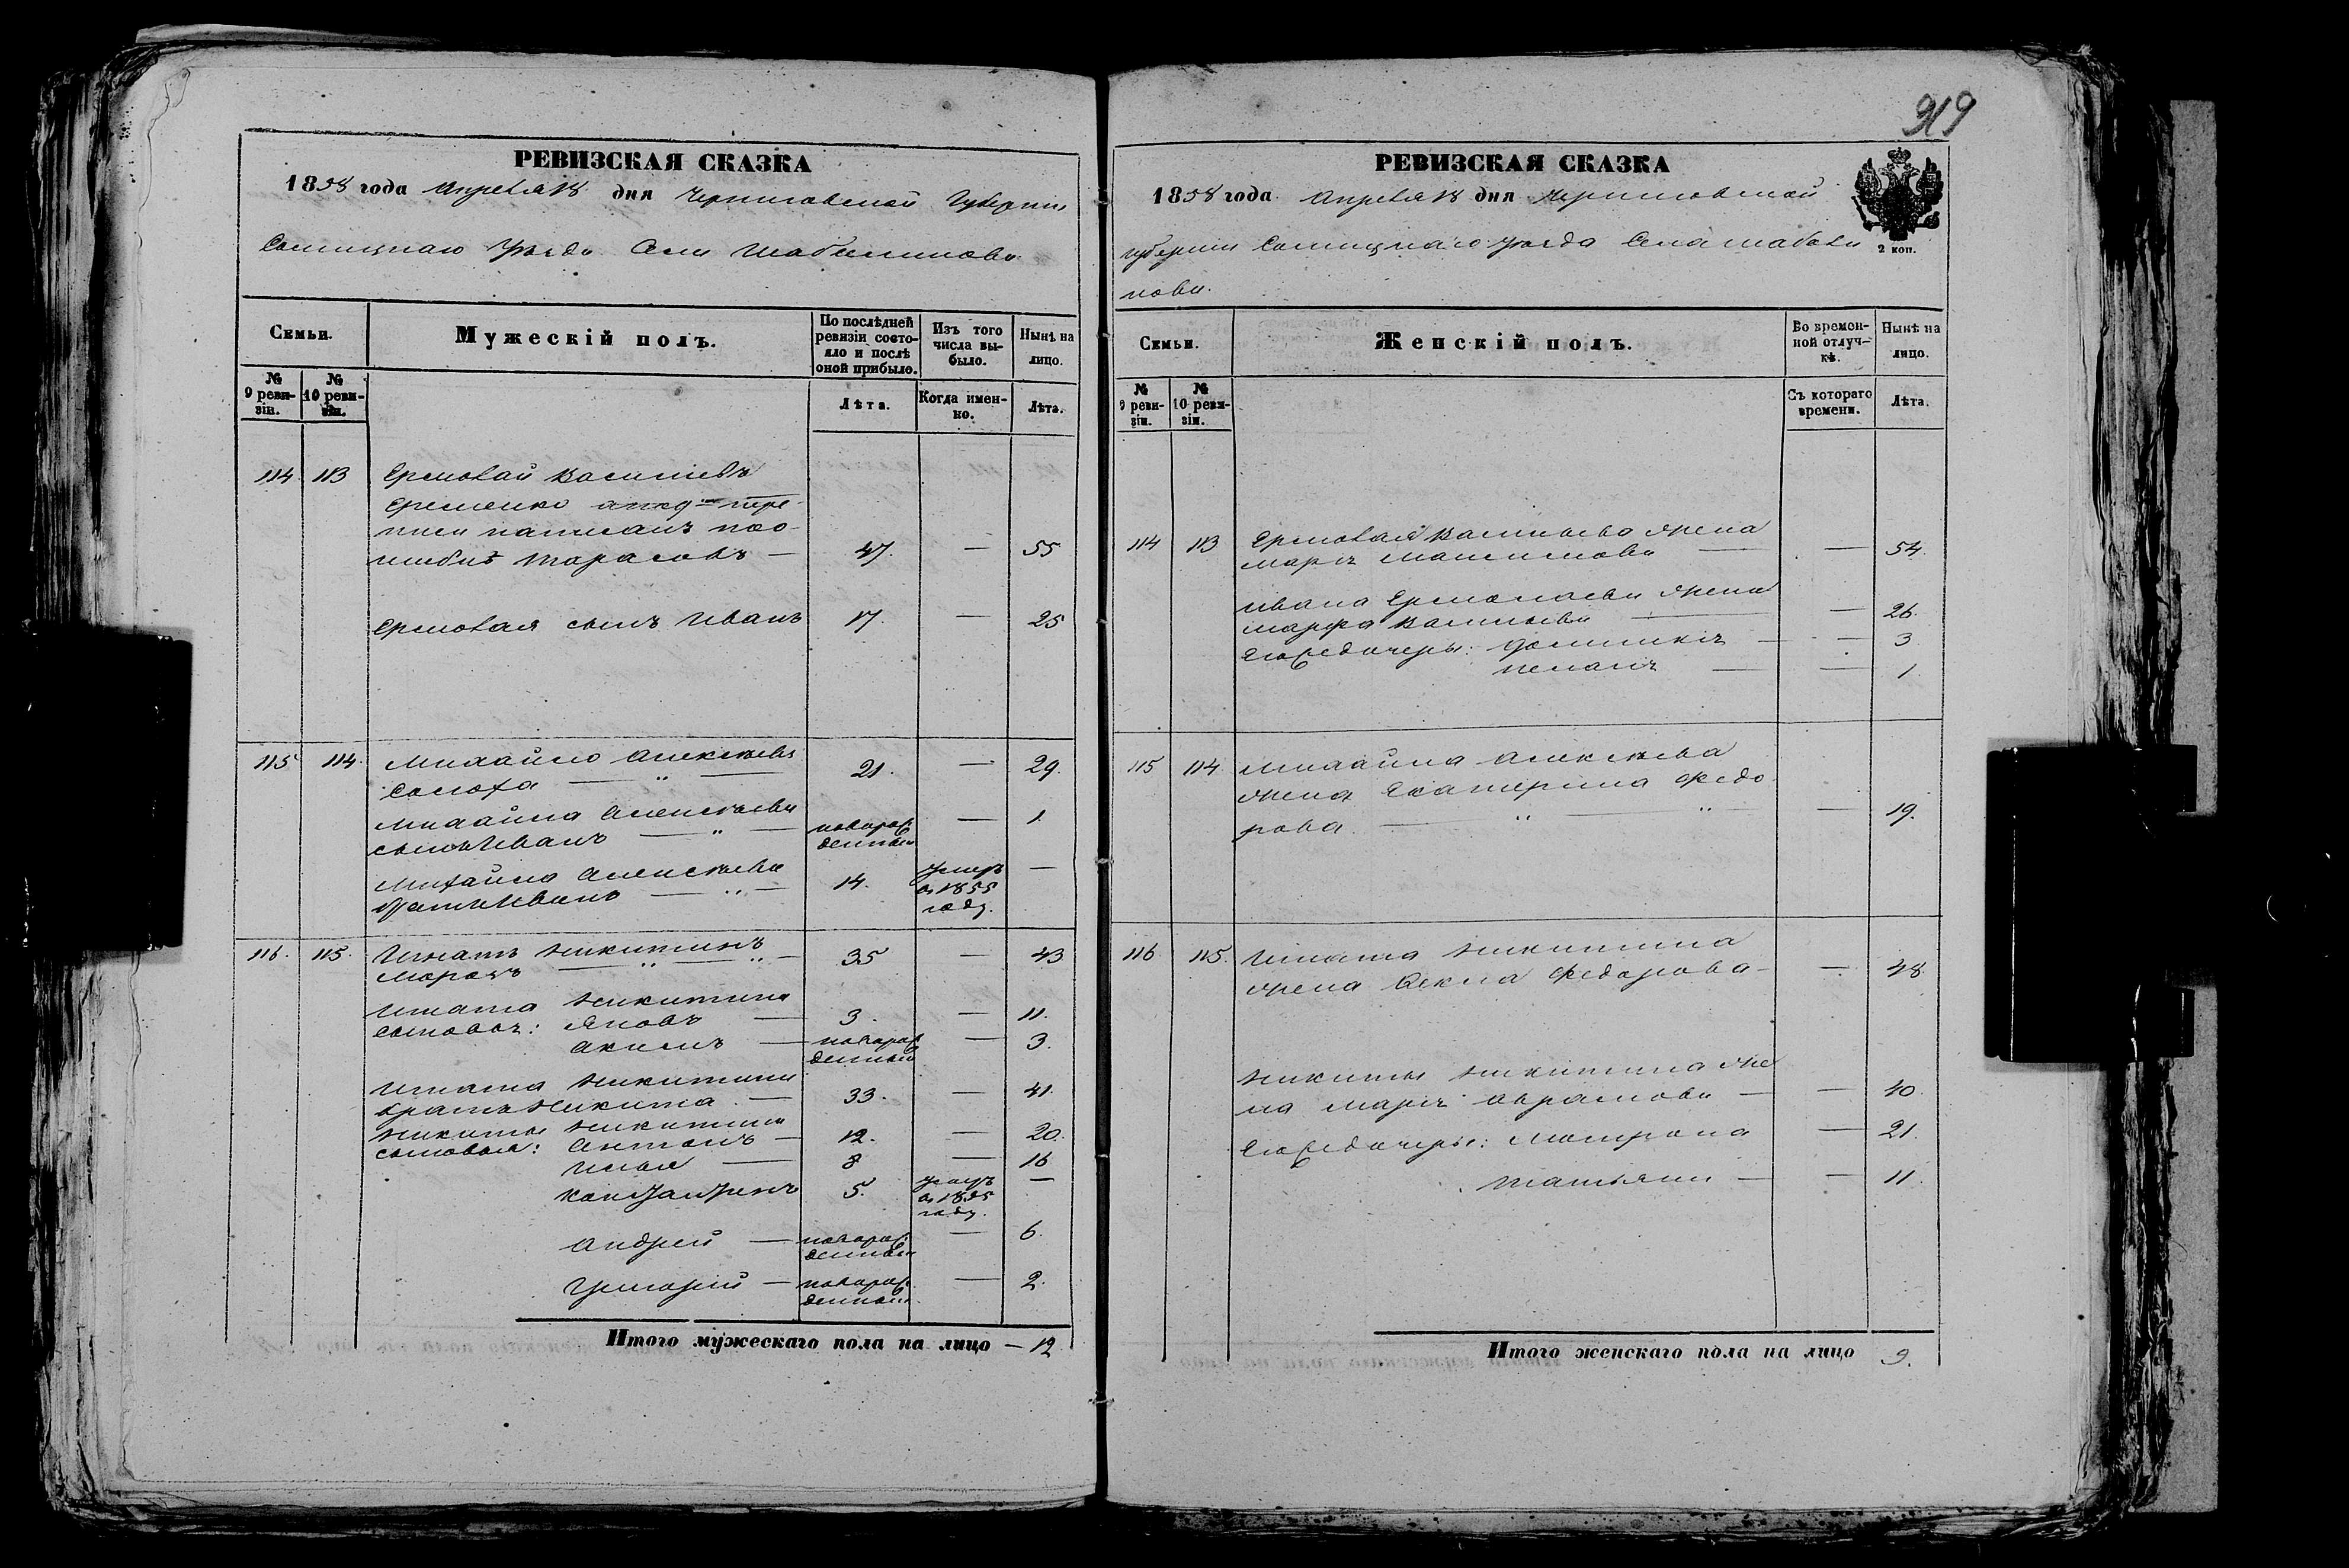 РЕВИЗСКАЯ СКАЗКА
1858 года Апреля 18 дня Черниговской Губернии
Сосницкаго Уезда Села Шабалинова
Семьи.
Мужескій полъ.
По послѣдней ревизіи состояло и послѣ оной прибыло.
Изъ того числа выбыло.
Нынѣ на лицо.
№ 9 ревизіи.
№ 10 ревизіи.
Лѣта.
Когда именно.
Лѣта.
114 113 Ермолай Васильевъ
Еременко
написанъ по о-
шибкѣ Тарасовъ — 47. — 55
Ермолая сынъ Иванъ 17. — 25
115 114 Михайло Алексѣевъ
Солоха — 21. — 29.
Михайла Алексѣева
сынъ Иванъ — новорож-
денный — 1
Михайла Алексѣева
братъ Иванъ — 14. умеръ
въ 1855
году. —
116. 115. Игнатъ Никитинъ
Морозъ — 35 — 43
Игната Никитина
сыновья: Яковъ — 3. — 11.
Акимъ — новорож-
денный — 3.
Игната Никитина
братъ Никита — 33. — 41.
Никиты Никитина
сыновья: Антонъ — 12. — 20.
Илья — 8 — 16
Константинъ 5. умеръ
въ 1855
году. —
Андрей — новорож-
денный — 6.
Григорій — новорож-
денный — 2.
Итого мужескаго пола на лицо — 12
919
РЕВИЗСКАЯ СКАЗКА
1858 года Апреля 18 дня Черниговской
губернии Сосницкаго уезда Села Шабали
нова.
2 коп.
Семьи.
Женскій полъ.
Во временной отлучкѣ.
Нынѣ на лицо.
№ 9 ревизіи.
№ 10 ревизіи.
Съ котораго времени.
Лѣта.
114 113 Ермолая Васильева жена
Марія Максимова — — 54.
Ивана Ермолаева жена
Марфа Васильева — — 26.
Его дочери: — — 3
— — 1
115 114 Михайла Алексѣева
жена Екатерина Федо
рова — — 19.
116 115. Игната Никитина
жена Фекла Федорова — — 48
Никиты Никитина же
на Марія Абрамова — — 40.
Его дочери: Матрона — 21.
Татьяна — — 11.
Итого женскаго пола на лицо 9.